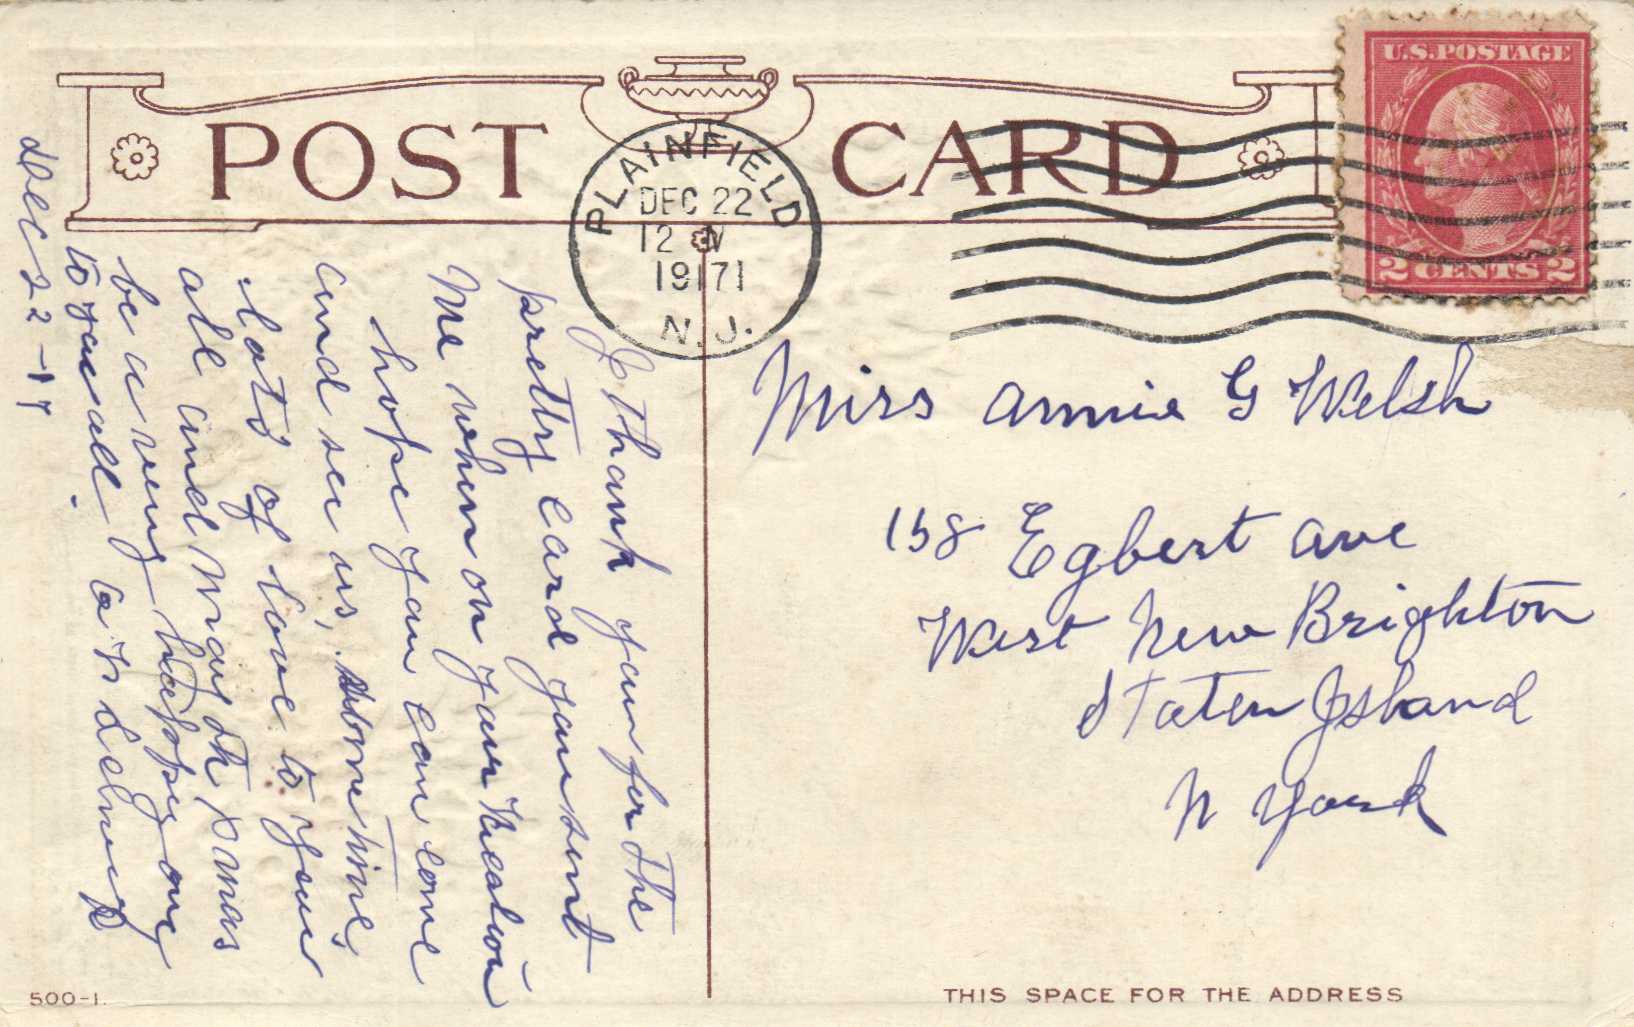 POST CARD
PLAINFIELD
DEC 22
12
1917
N.J.
U.S. POSTAGE
2 CENTS 2
Miss Annie G Welsh
158 Egbert Ave
West New Brighton
Staten Island
N York
I thank you for the
pretty card you sent
me when on your vacation
hope you can come
and see us, sometime,
lots of love to you
all and may the Xmas
be a very happy one
to you all.
Dec 22-17
500-1.
THIS SPACE FOR THE ADDRESS